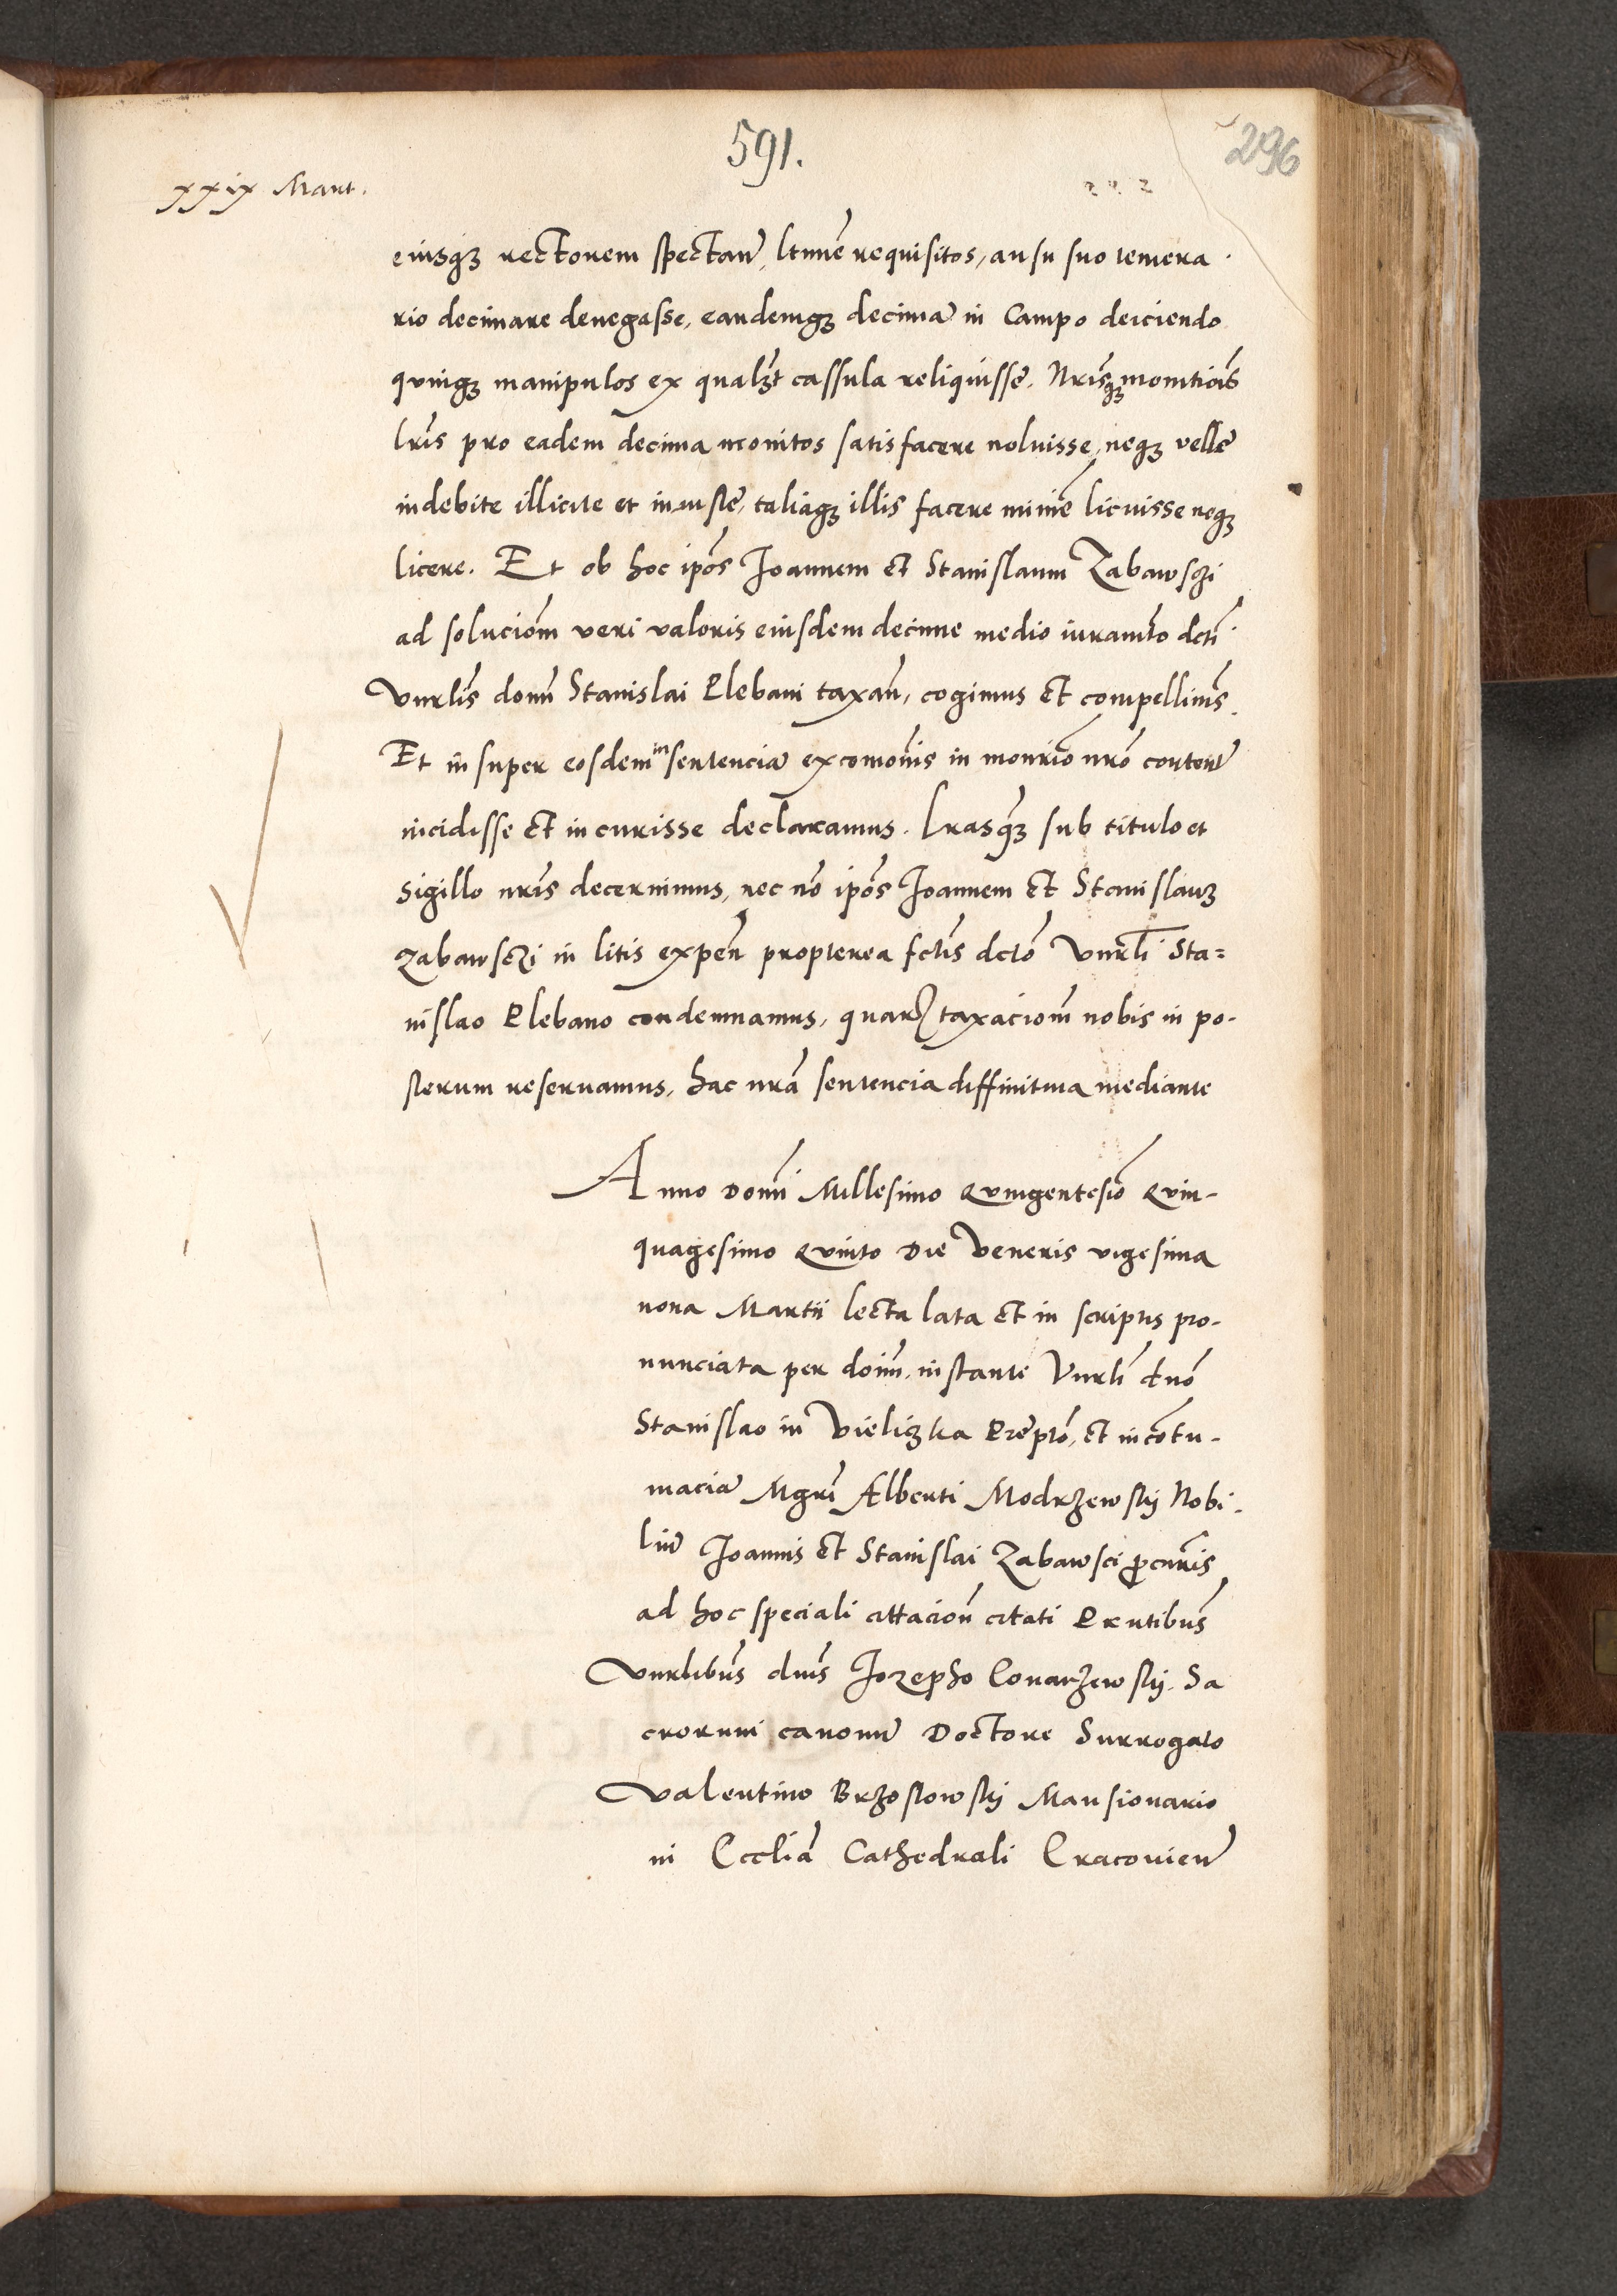 591.
296
xxix Mart.
eiusq3 rectorem spectan̄, ltimē requisitos, ausu suo temera
rio decimare denegasse, eandemq3 decimā in Campo deiciendo
quinq3 manipulos ex qual3t cassula reliquisse. Nrisq3 monitiois
lris pro eadem decima monitos satisfacere noluisse, neq3 velle
indebite illicite et iniuste, taliaq3 illis facere minīe licuisse neq3
licere. Et ob hoc ipōs Joannem et Stanislaum Zabawsçi
ad soluciōm veri valoris eiusdem decime medio iuramēto dcti
Vnrlis domī Stanislai Plebani taxan̄, cogimus et compellim9
Et in super eosdem in sentenciā excomōnis in monriō nrō contentā
incidisse et incurisse declaramus. Lrasq3 sub titulo et
Sigillo nris decernimus, nec nō ipōs Joannem et Stanislau3
Zabawsçzi in litis expen̄ propterea fctis dctō Vnrli Sta=
nislao Plebano condemnamus, quar4 taxaciōm nobis in po-
sterum reseruamus, hac nrā sentencia diffinitiua mediante
Anno Domī Millesimo Quingentesīo Quin-
quagesimo Quinto Die Veneris vigesima
nona Martii lecta lata et in scriptis pro-
nunciata per doīm, instante Vnrli dnō
Stanislao in Vieliczka Preptō, et in cōtu-
maciā Mgri Alberti Modrzewskij Nobi-
liū Joannis et Stanislai Zabawsci procuris
ad hoc speciali cittaciōn citati Prntibus
Vnrlibus dnis Jozepho Conarzewskij Sa
crorum canonū Doctore Surrogato
Valentino Brzostowskij Mansionario
in Eccliā Cathedrali Cracouien̄